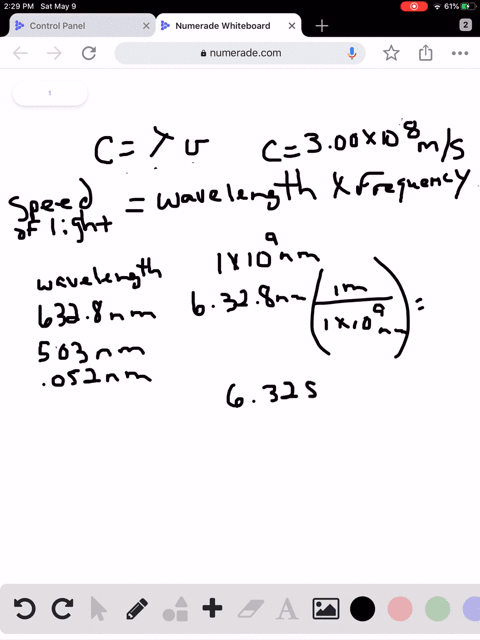 2:29 PM Sat May 9
61%
Control Panel
Numerade Whiteboard
2
numerade.com
1
C = λ υ C = 3.00 x 10^8 m/s
Speed of light = wavelength x frequency
1 x 10^9 nm
wavelength
632.8 nm
6.32.8nm (1m / 1 x 10^9 nm) =
503 nm
.052 nm
6.32 8
A